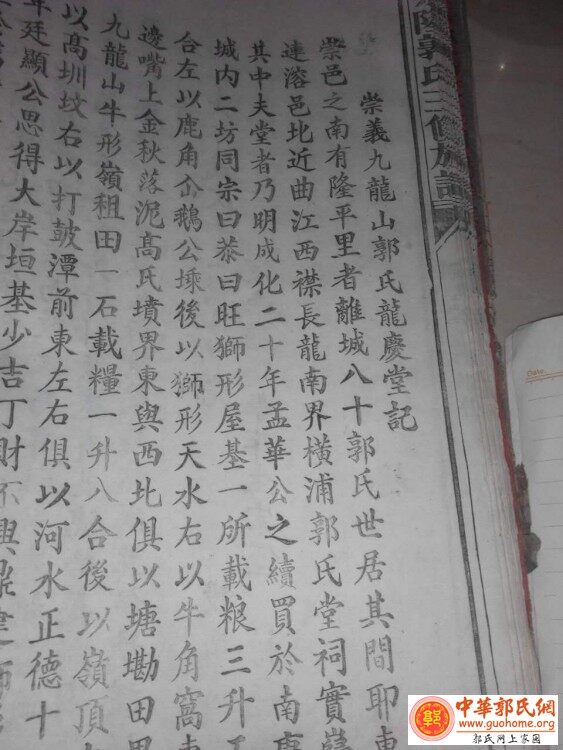 隆郭氏三修族譜
崇義九龍山郭氏龍慶堂記
崇邑之南有隆平里者離城八十郭氏世居其間耶東
連溶邑北近曲江西襟長龍南界橫浦郭氏堂祠實
其中夫堂者乃明成化二十年孟華公之續買於南康
城内二坊同宗曰恭曰旺獅形屋基一所載粮三升五
合左以鹿角仚鵝公埀後以獅形天水右以牛角窩
邊嘴上金秋落泥高氏墳界東與西北俱以塘勘田
九龍山牛形嶺租田一石載糧一升八合後以嶺頂
以高圳坟右以打皷潭前東左右俱以河水正德十
年廷顯公思得大岸垣基少吉丁財不興
Date
中華郭氏網
www.guohome.org
郭氏网上家园